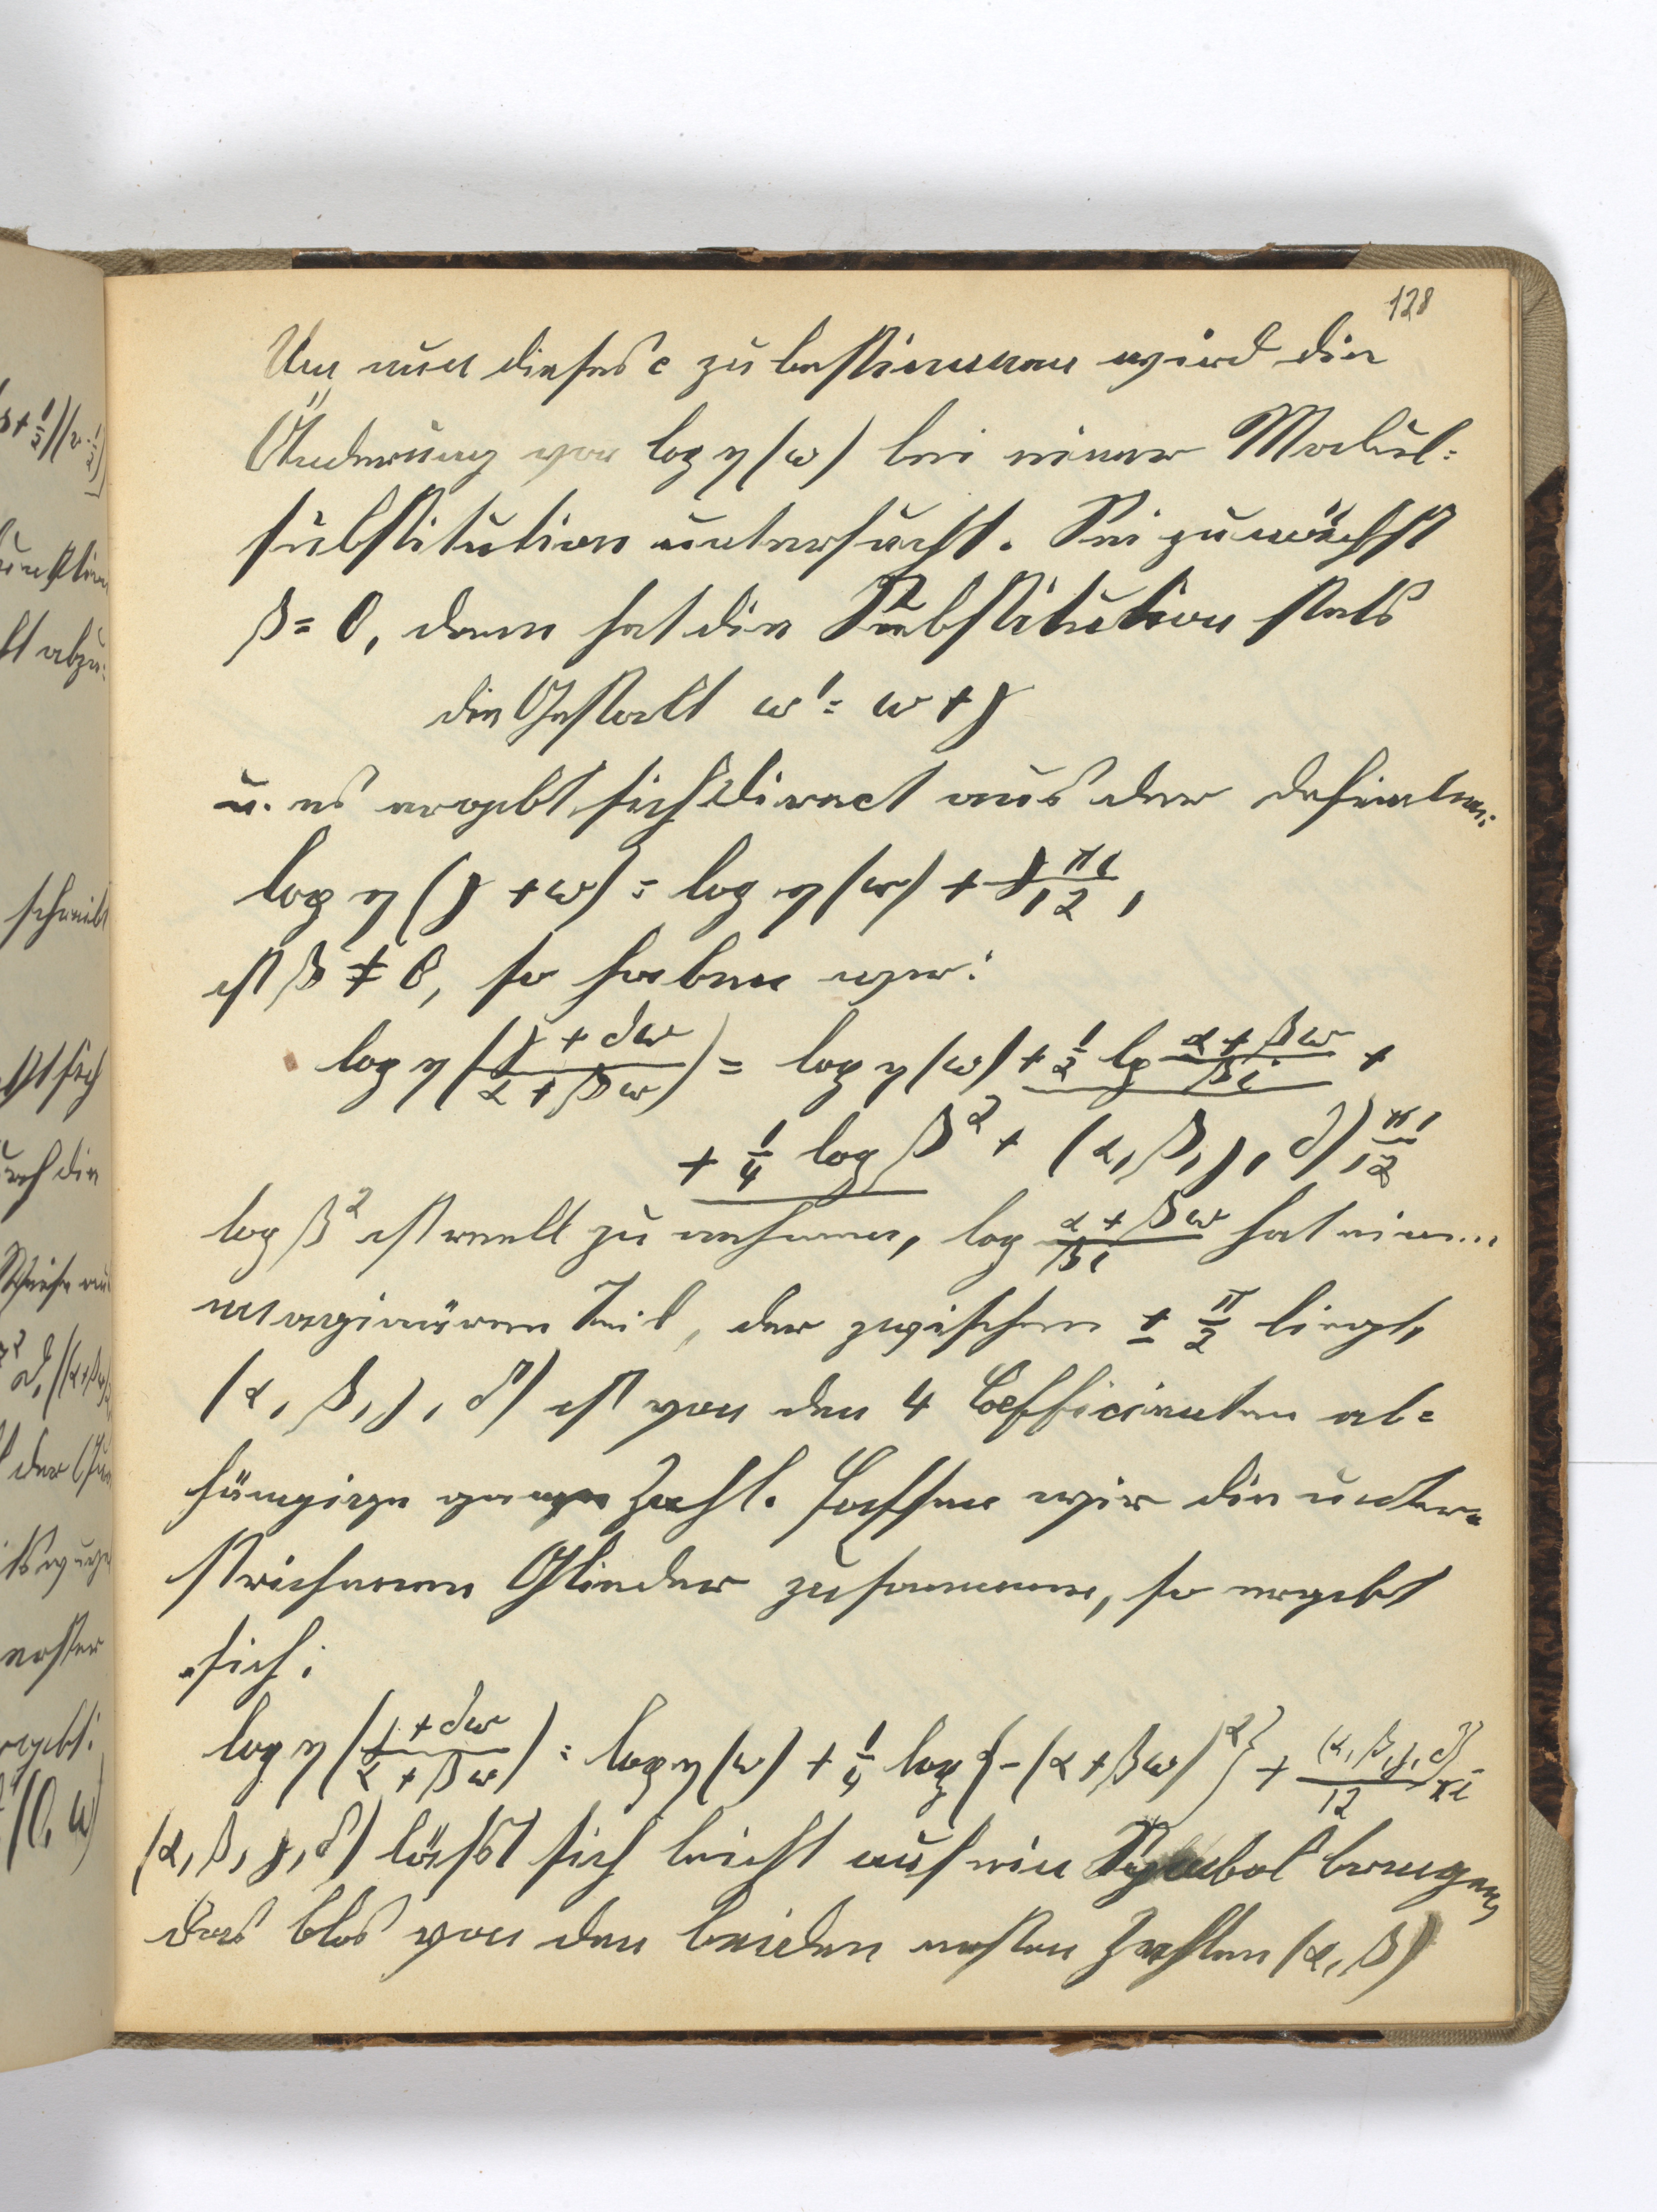 128
Um nun dieses c zu bestimmen wird die
Änderung von log η(ω) bei einer Modul=
substitution untersucht. Sei zunächst
β = 0, dann hat die Substitution stets
die Gestalt ω' = ω + γ
u. es ergebt sich direct aus der Definition:
log η (γ + ω) = log η(ω) + γ πi/12,
ist β ≠ 0, so haben wir:
log η ((γ + δω)/(α + βω)) = log η(ω) + 1/2 lg (α + βω)/(βi) +
+ 1/4 log β² + (α, β, γ, δ) πi/12
log β² ist reell zu nehmen, log (α + βω)/(βi) hat einen
imaginären Teil, der zwischen ± π/2 liegt,
(α, β, γ, δ) ist von den 4 Coefficienten ab=
hängige ganze Zahl. Fassen wir die unter=
strichenen Glieder zusammen, so ergebt
sich:
log η ((γ + δω)/(α + βω)) = log η(ω) + 1/4 log {-(α + βω)²} + (α, β, γ, δ)/12 πi
(α, β, γ, δ) läßt sich leicht auf ein Symbol bringen,
das blos von den beiden ersten Zahlen (α, β)